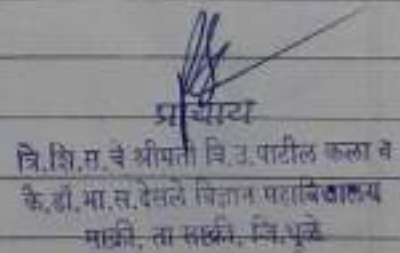 प्राचार्य
वि.शि.म.चे श्रीमती वि.उ.पाटील कला व
कै.डॉ.भा.स.देसले विज्ञान महाविद्यालय
साक्री, ता साक्री, जि.धुळे